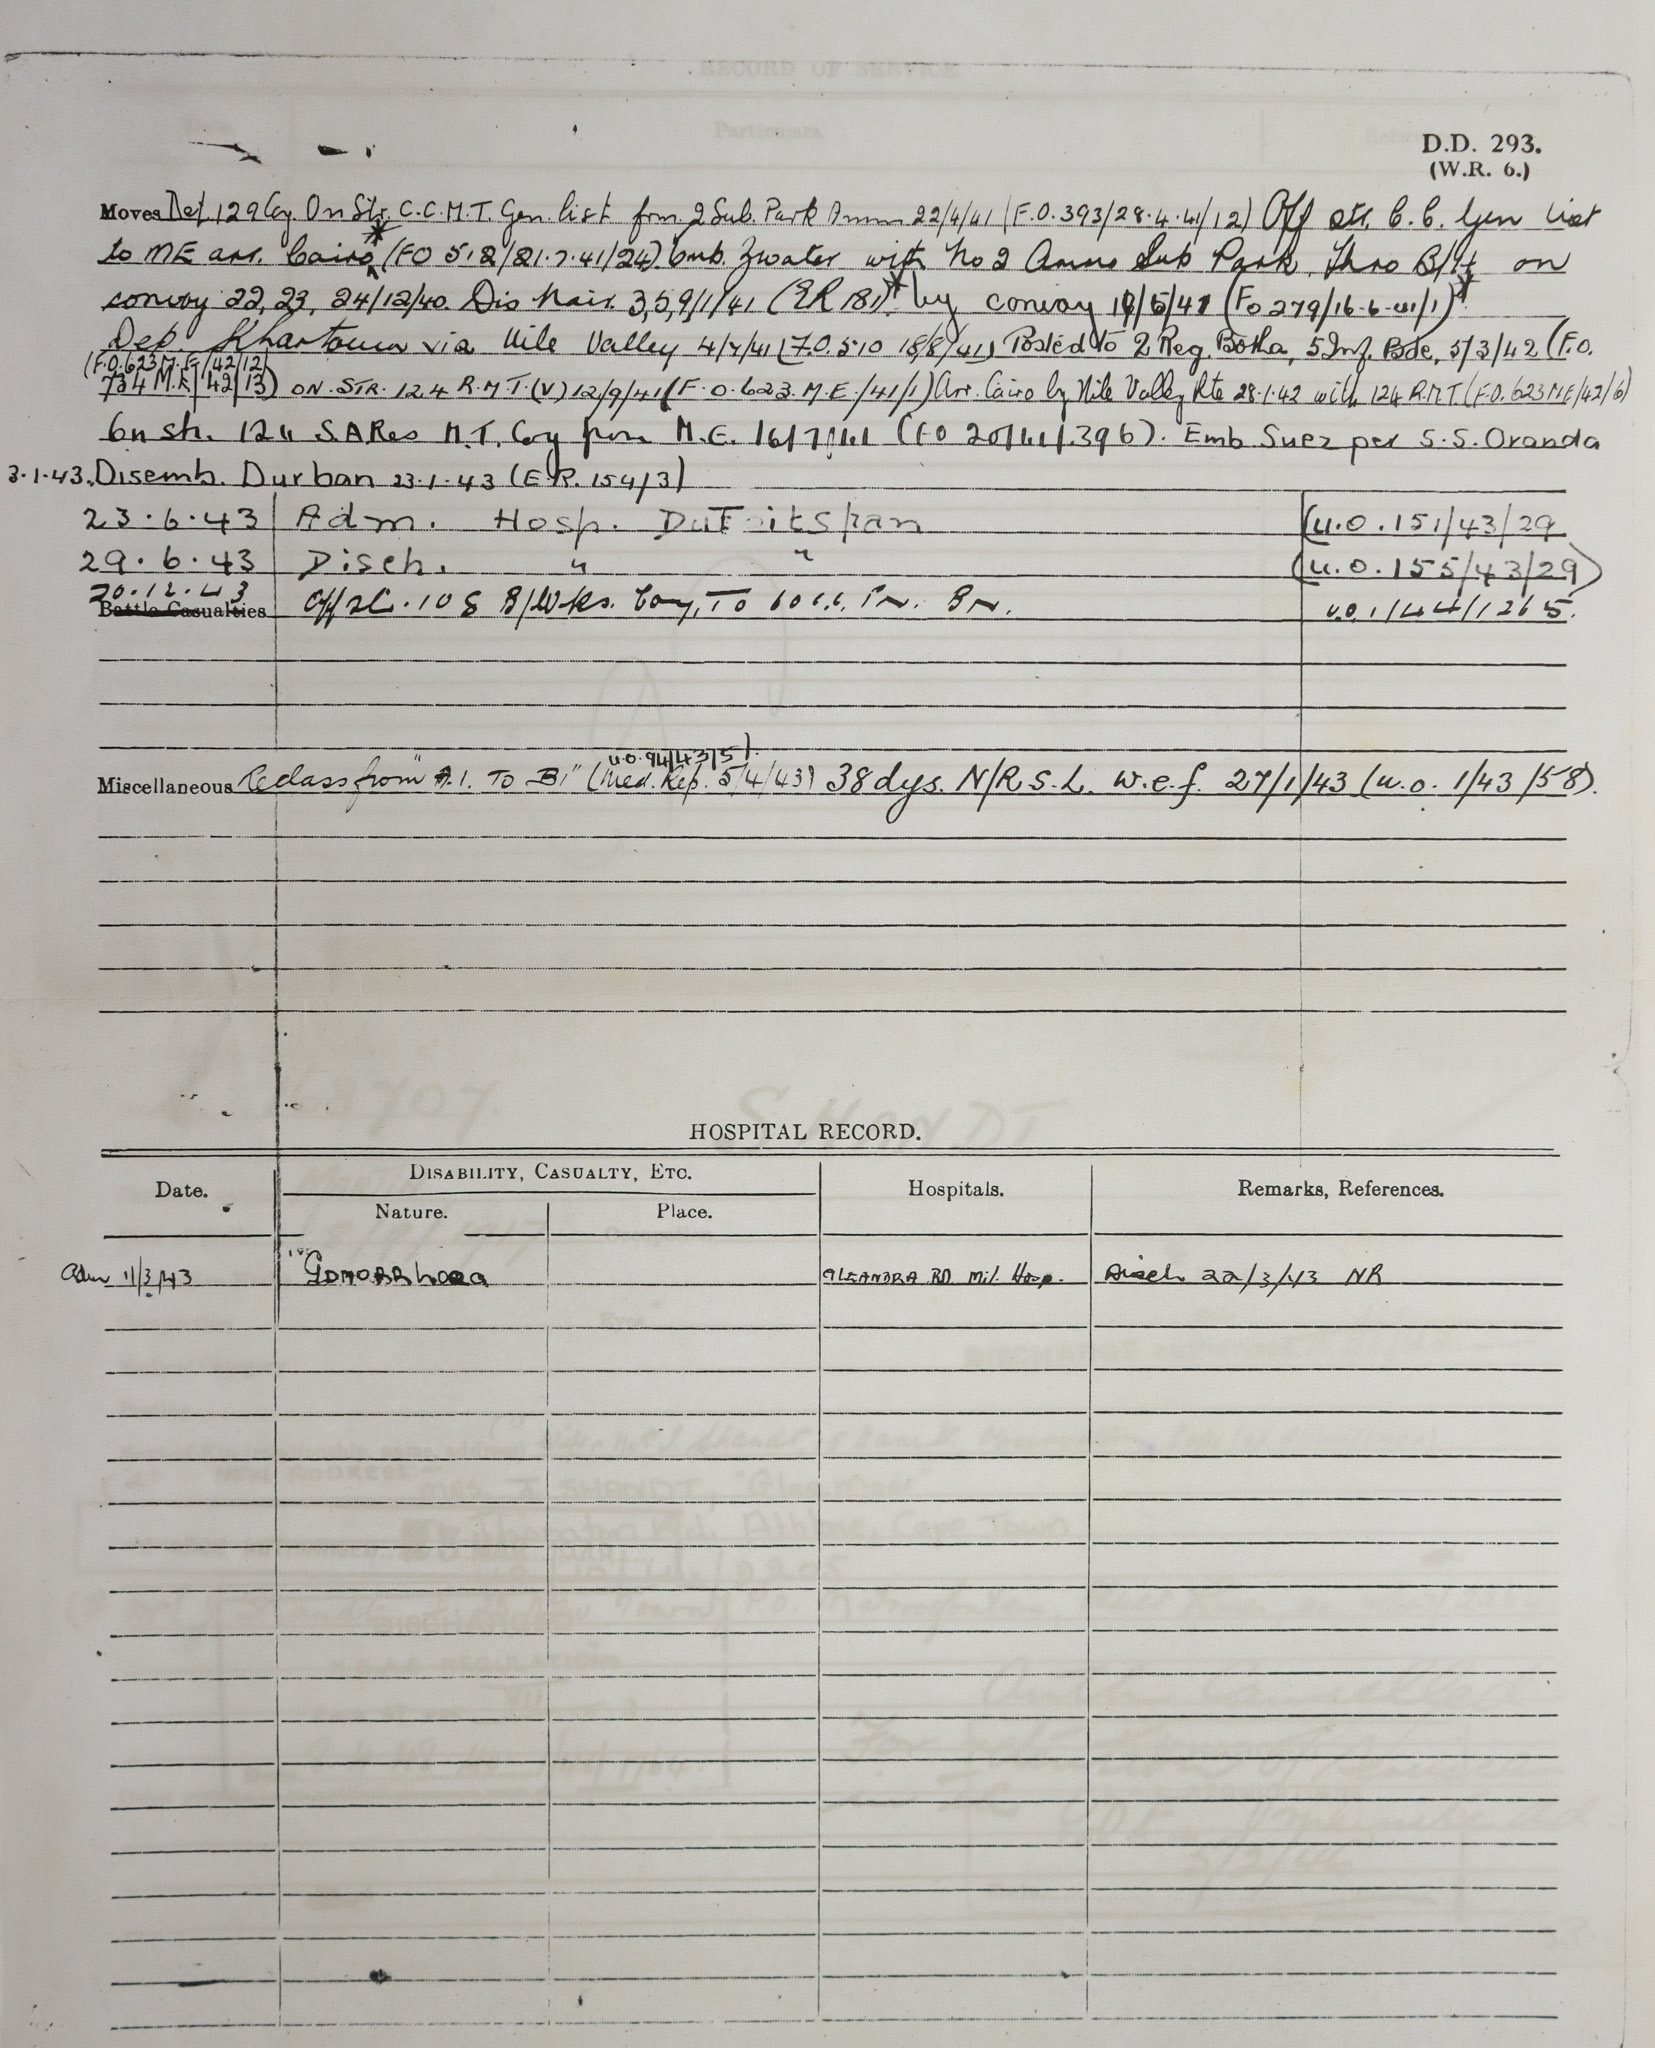 D.D. 293.
(W.R. 6.)
Moves Det 129 Coy. On Str. C.C.M.T. Gen. list from 2 Sub. Park Amm 22/4/41 (F.O. 393/28.4.41/12) Off str. C.C. Gen List
to ME arr. Cairo (FO 5.2/21.7.41/24). Emb. Zwater with No 2 Amm Sub Park. Thro B/H on
convoy 22, 23, 24/12/40. Dis Nair. 3,5,9/1/41 (ER 181) by convoy 18/5/41 (Fo 279/16.6.41/1)
Dep Khartoum via Nile Valley 4/7/41 (F.O. 510 18/8/41) Posted to 2 Reg. Botha, 5 Inf. Bde, 5/3/42 (F.O.
(F.O. 623 M.E/42/12)
734 M.E/42/13) ON. STR. 124 R.M.T. (V) 12/9/41 (F.O. 623. M.E./41/1) Arr. Cairo by Nile Valley Rte 28.1.42 with 124 R.M.T. (F.O. 623 ME/42/6)
on str. 124 S.A Res M.T. Coy from M.E. 16/7/41 (FO 20/41/396). Emb Suez per S.S. Oranda
3.1.43. Disemb. Durban 23.1.43 (E.R. 154/3)
23.6.43 Adm. Hosp. DuToitspan (U.O. 151/43/29
29.6.43 Disch. " " (U.O. 155/43/29)
20.12.43
Battle Casualties Off str. 108 B/Wks. Coy, To 10 C.C. Pn. Bn. U.O. 1/44/1265.
U.O. 94/43/5).
Miscellaneous Reclass from "A.1. To B1" (Med. Rep. 5/4/43) 38 dys. N/R.S.L. w.e.f. 27/1/43 (U.O. 1/43/58).
HOSPITAL RECORD.
Date. DISABILITY, CASUALTY, ETC. Hospitals. Remarks, References.
Nature. Place.
Adm 11/3/43 Gonorrhoea ALEANDRA RD Mil. Hosp. Disch 22/3/43 NR